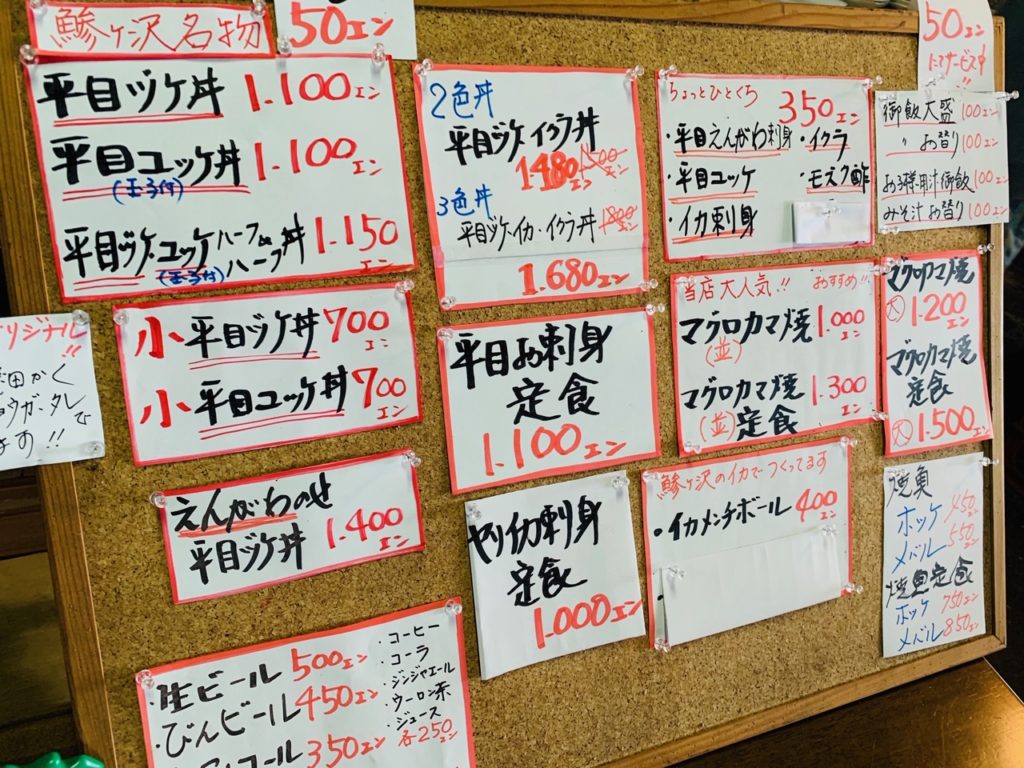 鰺ヶ沢名物
50エン
平目ヅケ丼 1.100エン
平目ユッケ丼 1.100エン
(玉子付)
平目ヅケ・ユッケ ハーフ&ハーフ丼 1.150エン
(玉子付)
小 平目ヅケ丼 700エン
小 平目ユッケ丼 700エン
えんがわのせ
平目ヅケ丼 1.400エン
・生ビール 500エン
・びんビール 450エン
コール 350エン
・コーヒー
・コーラ
・ジンジャエール
・ウーロン茶
・ジュース
各250エン
2色丼
平目ヅケ・イクラ丼
1480エン 1500エン
3色丼
平目ヅケ・イカ・イクラ丼 1800エン
1.680エン
平目お刺身
定食
1.100エン
ヤリイカ刺身
定食
1.000エン
ちょっとひとくち
350エン
・平目えんがわ刺身
・イクラ
・平目ユッケ
・モズク酢
・イカ刺身
当店大人気!! おすすめ!!
マグロカマ焼 1.000エン
(並)
マグロカマ焼 1.300エン
(並)定食
鰺ヶ沢のイカでつくってます
・イカメンチボール 400エン
50エン
サービス中!!
御飯大盛 100エン
〃 お替り 100エン
お子様用汁御飯 100エン
みそ汁お替り 100エン
マグロカマ焼
大 1.200エン
マグロカマ焼
定食
大 1.500エン
焼魚
ホッケ 450エン
メバル 550エン
焼魚定食
ホッケ 750エン
メバル 850エン
リジナル!!
かく
ウガ、タレ
ます!!